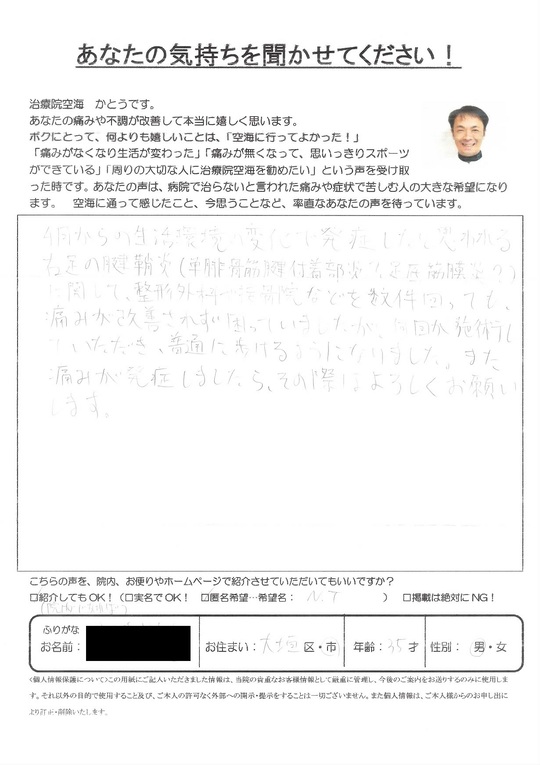 あなたの気持ちを聞かせてください！
治療院空海　かとうです。
あなたの痛みや不調が改善して本当に嬉しく思います。
ボクにとって、何よりも嬉しいことは、「空海に行ってよかった！」
「痛みがなくなり生活が変わった」「痛みが無くなって、思いっきりスポーツ
ができている」「周りの大切な人に治療院空海を勧めたい」という声を受け取
った時です。あなたの声は、病院で治らないと言われた痛みや症状で苦しむ人の大きな希望になり
ます。　空海に通って感じたこと、今思うことなど、率直なあなたの声を待っています。
4月からの生活環境の変化で発症したと思われる
右足の腱鞘炎(単腓骨筋腱付着部炎?足底筋膜炎?)
に関して、整形外科や治療院などを数件回っても、
痛みが改善されず困っていましたが、何回か施術し
ていただき、普通に歩けるようになりました。また
痛みが発症しましたら、その際はよろしくお願い
します。
こちらの声を、院内、お便りやホームページで紹介させていただいてもいいですか？
☐紹介してもOK！（☐実名でOK！ ☑匿名希望…希望名： N.T ） ☐掲載は絶対にNG！
ふりがな
お名前： お住まい：大垣 区・市 年齢：35才 性別： 男・女
<個人情報保護について>この用紙にご記入いただきました情報は、当院の貴重なお客様情報として厳重に管理し、今後のご案内をお送りするのみに使用しま
す。それ以外の目的で使用すること及び、ご本人の許可なく外部への開示・提示をすることは一切ございません。また個人情報は、ご本人様からのお申し出に
より訂正・削除いたします。